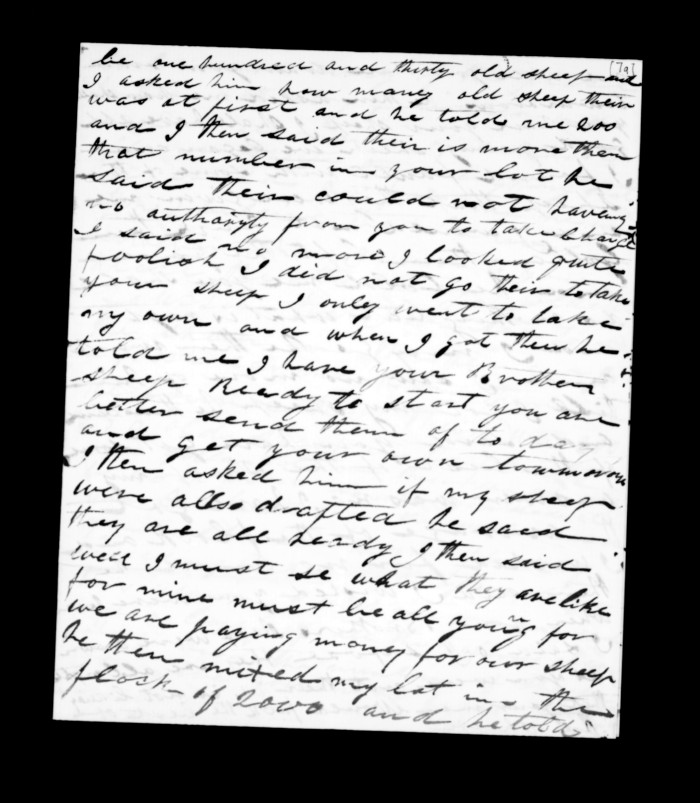 [7a]
be one hundred and thirty old sheep and
I asked him how many old sheep their
was at first and he told me 200
and I then said their is more then
that number in your lot he
said their could not having
no authority from you to take charge
I said no more I looked quite
foolish I did not go their to take
your sheep I only went to take
my own and when I got then he
told me I have your Brothers
sheep Ready to start you are
better send them of to day
and get your own tommorow
I then asked him if my sheep
were allso drafted he said
they are all ready I then said
well I must se what they are like
for mine must be all young for
we are paying money for our sheep
he then mixed my lot in the
flock of 2000 and he told